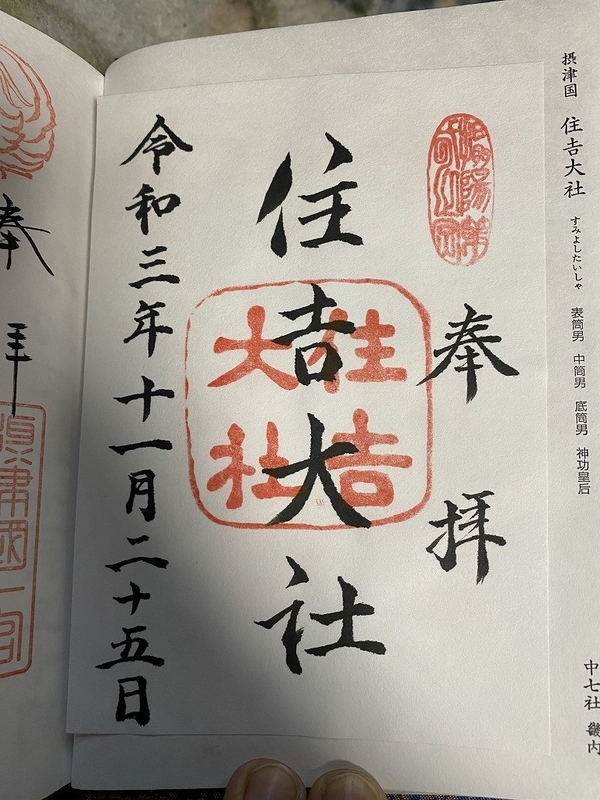 摂津国 住吉大社 すみよしたいしゃ 表筒男 中筒男 底筒男 神功皇后
中七社 畿内
奉拝
住吉大社
住吉
大社
令和三年十一月二十五日
奉拝